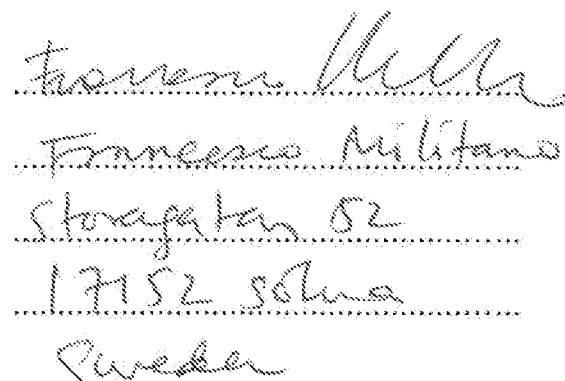 Francesco
Francesco Militano
Storagatan 52
17152 Solna
Sweden